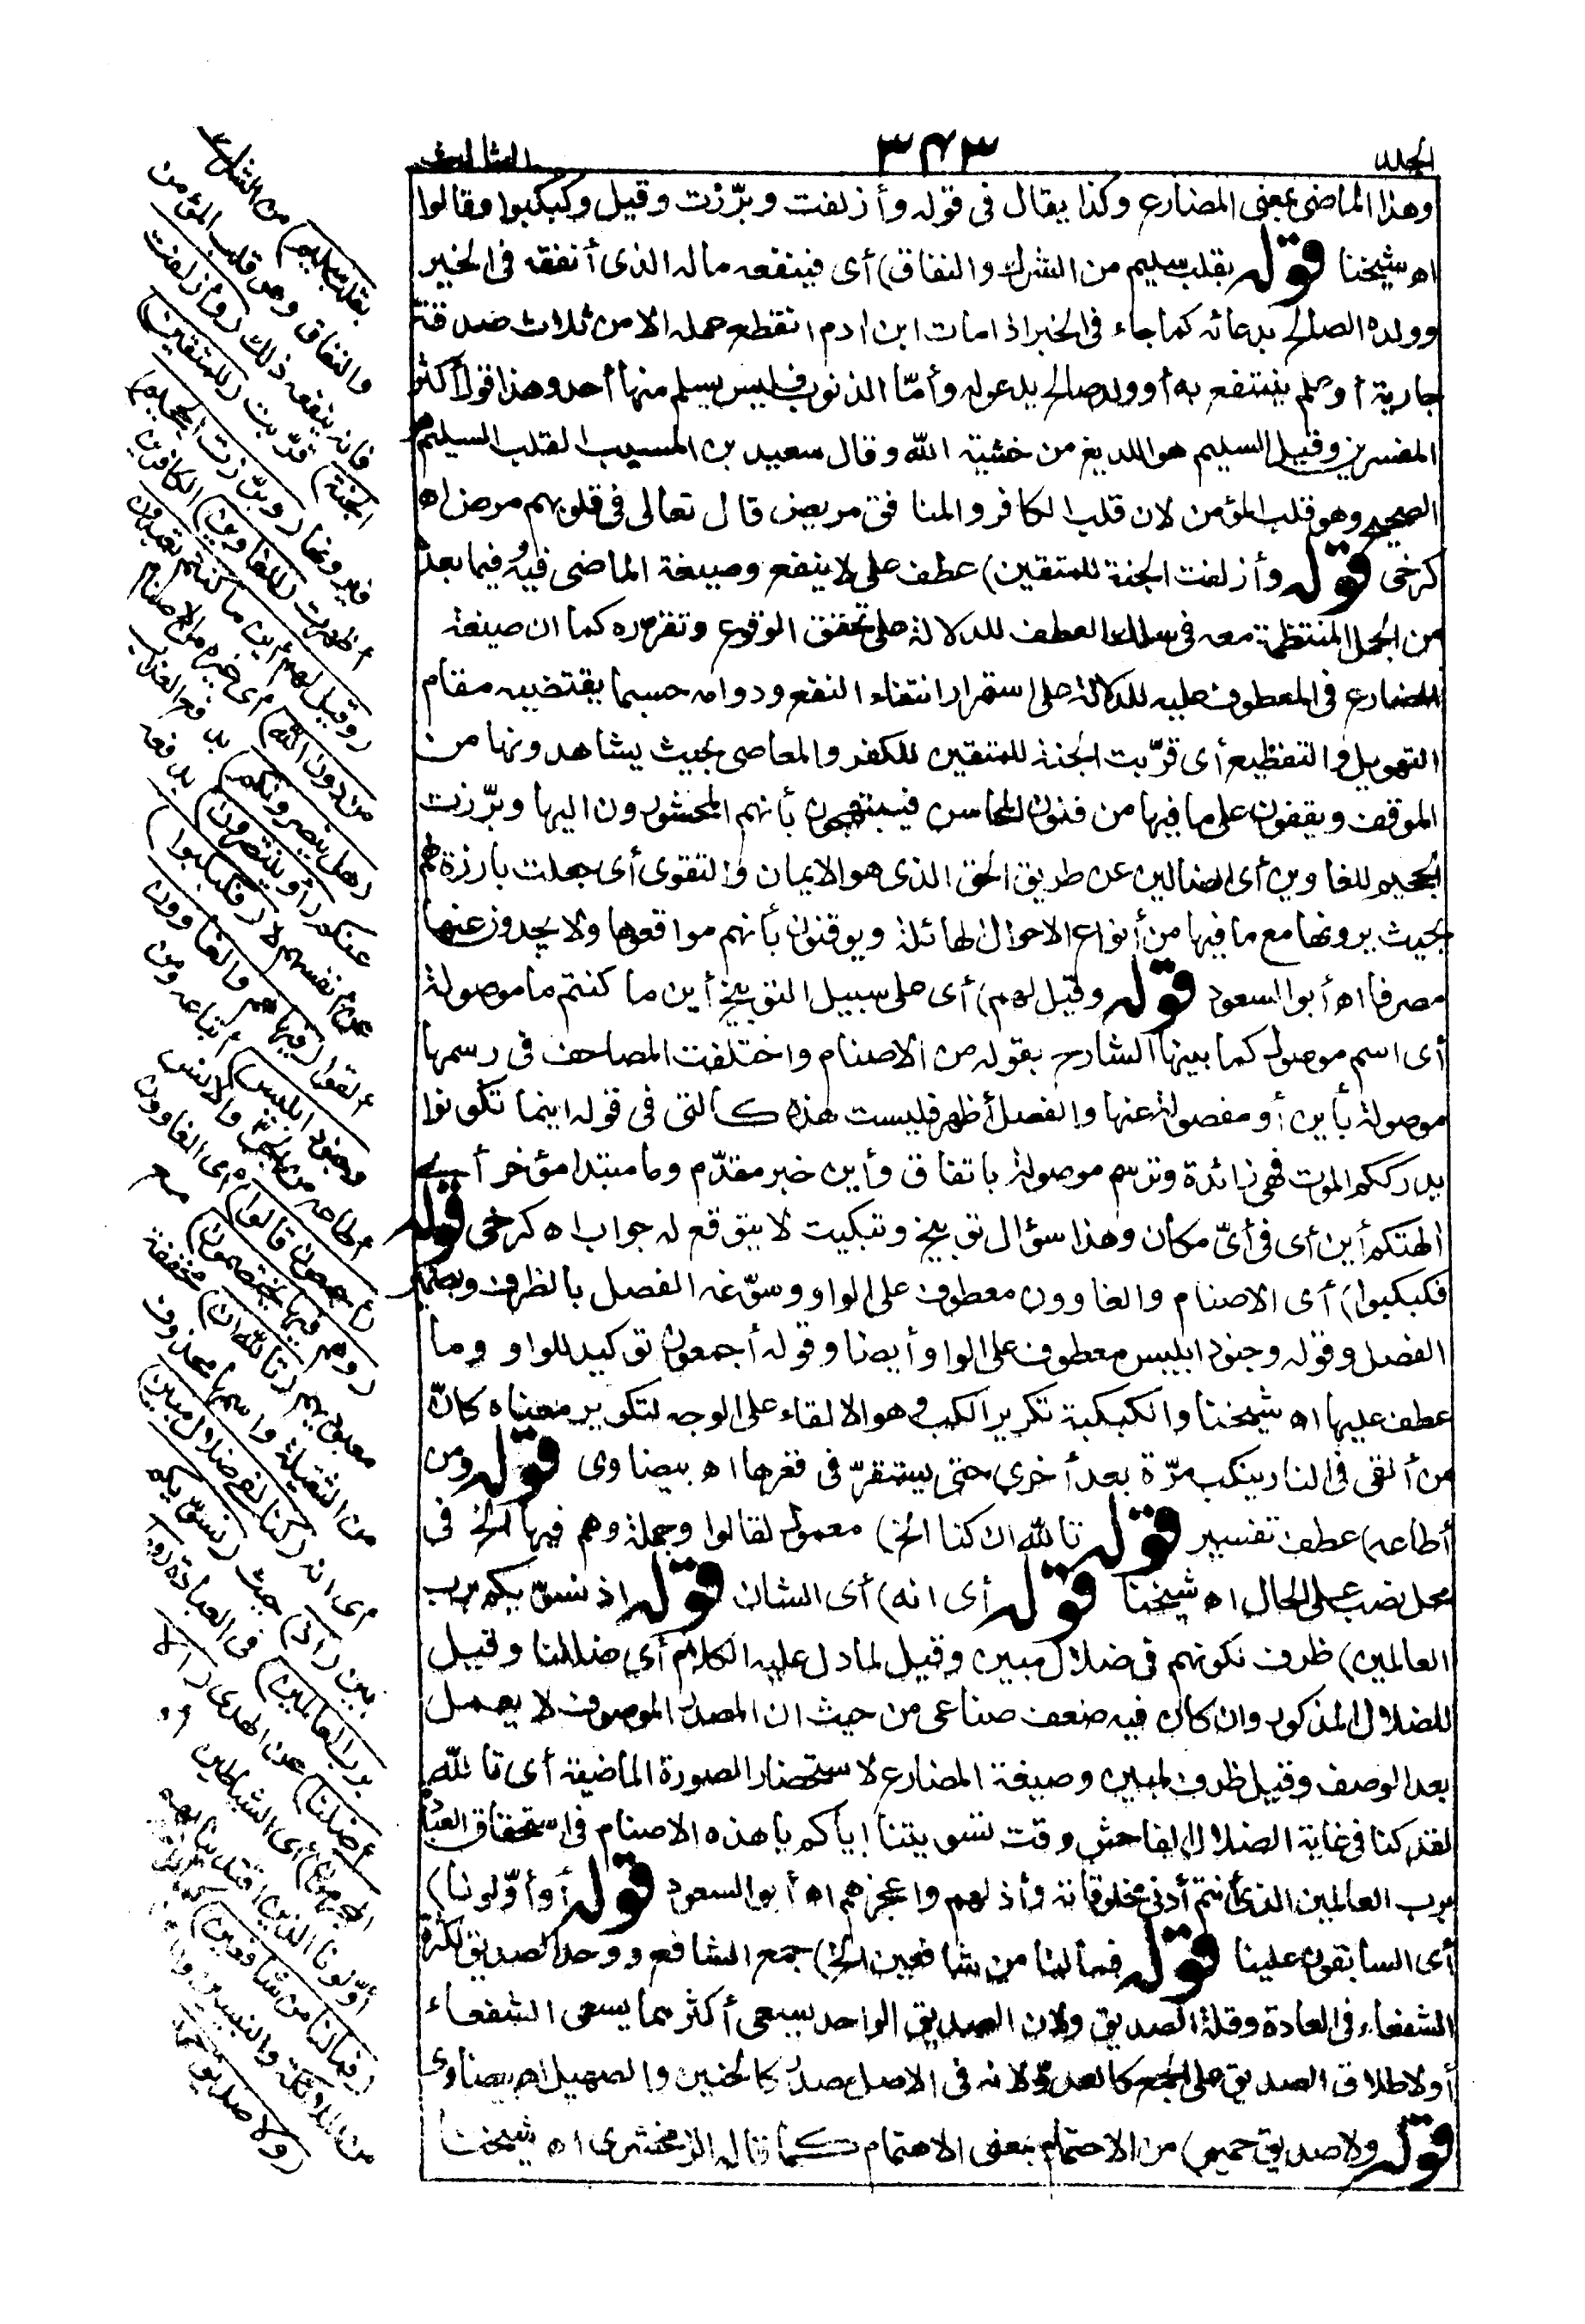 الجلد ٣٤٣ الثالث
وهذا الماضى بمعنى المضارع وكذا يقال فى قوله وأزلفت وبرّزت وقيل وكبكبوا وقالوا
اه شيخنا قوله بقلب سليم من الشرك والنفاق) أى فينفعه ماله الذى أنفقه فى الخير
وولده الصالح بدعائه كما جاء فى الخبر اذا مات ابن ادم انقطع عمله الا من ثلاث صدقة
جارية أو علم ينتفع به أو ولد صالح يدعو له وأمّا الذنوب فليس يسلم منها أحد وهذا قول أكثر
المفسرين وقيل السليم هو اللديغ من خشية الله وقال سعيد بن المسيب القلب السليم هو
الصحيح وهو قلب المؤمن لان قلب الكافر والمنافق مريض قال تعالى فى قلوبهم مرض اه
كرخى قوله وأزلفت الجنة للمتقين) عطف على لا ينفع وصيغة الماضى فيه وفيما بعده
من الجمل المنتظمة معه فى سلك العطف للدلالة على تحقق الوقوع وتقرره كما ان صيغة
المضارع فى المعطوف عليه للدلالة على استمرار انتفاء النفع ودوامه حسبما يقتضيه مقام
التهويل والتفظيع أى قرّبت الجنة للمتقين للكفر والمعاصى بحيث يشاهدونها من
الموقف ويقفون على ما فيها من فنون المحاسن فيبتهجون بأنهم المحشورون اليها وبرّزت
الجحيم للغاوين أى الضالين عن طريق الحق الذى هو الايمان والتقوى أى جعلت بارزة لهم
بحيث يرونها مع ما فيها من أنواع الاحوال الهائلة ويوقنون بأنهم مواقعوها ولا يجدون عنها
مصرفا اه أبو السعود قوله وقيل لهم) أى على سبيل التوبيخ أين ما كنتم ما موصولة
أى اسم موصول كما بينها الشارح بقوله من الاصنام واختلفت المصاحف فى رسمها
موصولة بأين أو مفصولة عنها والفصل أظهر فليست هذه كالتى فى قوله اينما تكونوا
يدرككم الموت فهى زائدة وترسم موصولة باتفاق وأين خبر مقدّم وما مبتدا مؤخر أى
الهتكم أين أى فى أىّ مكان وهذا سؤال توبيخ وتبكيت لا يتوقع له جواب اه كرخى قوله
فكبكبوا) أى الاصنام والغاوون معطوف على الواو وسوّغه الفصل بالظرف وبضمير
الفصل وقوله وجنود ابليس معطوف على الواو أيضا وقوله أجمعون توكيد للواو وما
عطف عليها اه شيخنا والكبكبة تكرير الكب وهو الالقاء على الوجه لتكوير معناه كانّ
من ألقى فى النار ينكب مرّة بعد أخرى حتى يستقرّ فى قعرها اه بيضاوى قوله ومن
أطاعه) عطف تفسير قوله تالله ان كنا الخ) معمول لقالوا وجملة وهم فيها الخ فى
محل نصب على الحال اه شيخنا قوله أى انه) أى الشان قوله اذ نسوّيكم برب
العالمين) ظرف لكونهم فى ضلال مبين وقيل لما دل عليه الكلام أى ضللنا وقيل
للضلال المذكور وان كان فيه ضعف صناعى من حيث ان المصدر الموصوف لا يعمل
بعد الوصف وقيل ظرف لمبين وصيغة المضارع لاستحضار الصورة الماضية أى تالله
لقد كنا فى غاية الضلال الفاحش وقت تسويتنا اياكم يا هذه الاصنام فى استحقاق العبادة
برب العالمين الذى أنتم أدنى مخلوقاته وأذلهم وأعجزهم اه أبو السعود قوله أو أوّلونا)
أى السابقون علينا قوله فما لنا من شافعين الخ) جمع الشافع ووحد الصديق لكثرة
الشفعاء فى العادة وقلة الصديق ولان الصديق الواحد يسعى أكثر مما يسعى الشفعاء
أو لاطلاق الصديق على الجمع كالعدوّ لانه فى الاصل مصدر كالحنين والصهيل اه بيضاوى
قوله ولا صديق حميم) من الاحتمام بمعنى الاهتمام كما قاله الزمخشرى اه شيخنا
بقلب سليم) من الشرك
والنفاق وهو قلب المؤمن
فانه ينفعه ذلك (وأزلفت
الجنة) قرّبت (للمتقين)
فيرونها (وبرّزت الجحيم)
أظهرت (للغاوين) الكافرين
(وقيل لهم أين ما كنتم تعبدون
من دون الله) أى غيره من الاصنام
(هل ينصرونكم) بدفع العذاب
عنكم (أو ينتصرون) بدفعه
عن أنفسهم لا (فكبكبوا)
ألقوا (فيها هم والغاوون
وجنود ابليس) أتباعه ومن
أطاعه من الجنّ والانس
(أجمعون قالوا) أى الغاوون
(وهم فيها يختصمون) مع
معبوديهم (تالله ان) مخففة
من الثقيلة واسمها محذوف
أى انه (كنا لفى ضلال مبين)
بين (اذ) حيث (نسوّيكم
برب العالمين) فى العبادة (وما
أضلنا) عن الهدى (الا
المجرمون) أى الشياطين أو
أوّلونا الذين اقتدينا بهم
(فما لنا من شافعين) كما للمؤمنين
من الملائكة والنبيين
(ولا صديق حميم